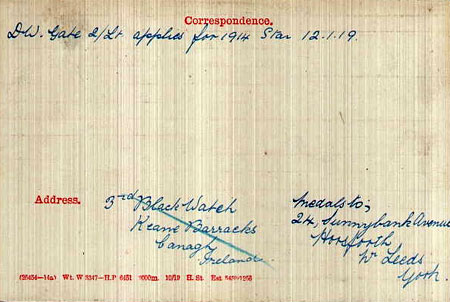 Correspondence.
D.W. Gate 2/Lt applies for 1914 Star 12.1.19.
Address.
3rd Black Watch
Keane Barracks
Curragh
Ireland
Medals to;
24, Sunnybank Avenue
Horsforth
Nr Leeds
York.
(25454—14a) Wt. W 3347—H.P 6451 1000m. 10/19 H. St.